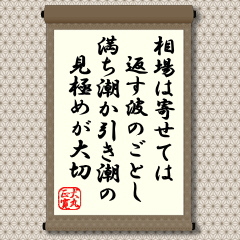 相場は寄せては
返す波のごとし
満ち潮か引き潮の
見極めが大切